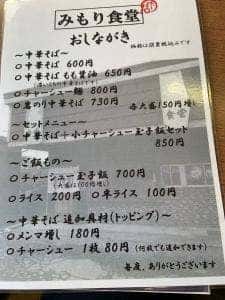 みもり食堂
おしながき
価格は消費税込みです
～中華そば～
○中華そば 600円
○中華そば もも醤油 650円
○チャーシュー麺 800円
○岩のり中華そば 730円
各大盛150円増し
～セットメニュー～
○中華そば＋小チャーシュー玉子飯セット
850円
～ご飯もの～
○チャーシュー玉子飯 700円
(大盛は100円増し)
○ライス 200円 ○半ライス 100円
～中華そば 追加具材(トッピング)～
○メンマ増し 180円
○チャーシュー 1枚 80円 (何枚でも追加できます)
毎度、ありがとうございます